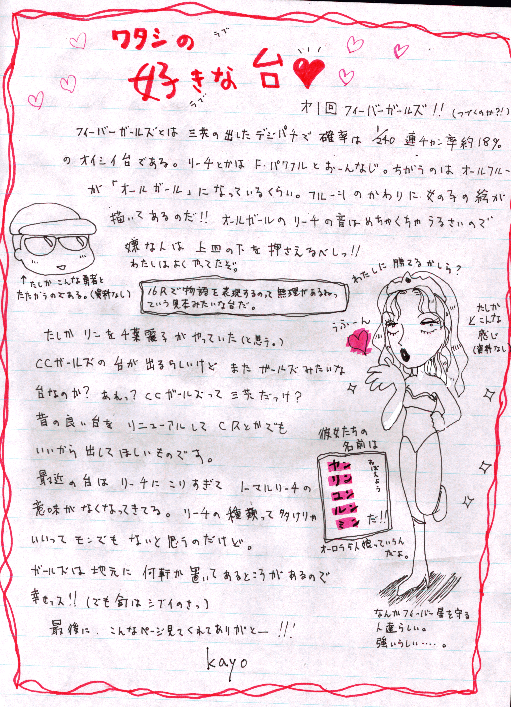 ワタシの
ラブ
好きな台
ラブ
オ1回 フィーバーガールズ!! (つづくのか?!)
フィーバーガールズとは 三共の出したデジパチで 確率は 1/240 連チャン率約18%
の オイシイ台である。リーチとかは F.パワフルと おーんなじ。ちがうのは オールフルーツ
が 「オールガール」になっているくらい。フルーツのかわりに 女の子の絵が
描いてあるのだ!! オールガールの リーチの音は めちゃくちゃ うるさいので
嫌な人は 上皿の下を押さえるべしっ!!
わたしは よく やってたぞ。
↑たしか こんな 勇者と
たたかうのである。(資料なし)
16Rで物語を表現するのって無理があるわっ
という見本みたいな台だ。
わたしに 勝てるかしら?
うふーん
たしか
こんな
感じ
(資料なし)
たしか リンを 千葉麗子が やっていた(と思う。)
CCガールズの 台が 出るらしいけど また ガールズみたいな
台なのか? あれっ? CCガールズって 三共だっけ?
昔の良い台を リニューアルして CRとかでも
いいから 出して ほしいものです。
最近の 台は リーチに こりすぎて ノーマルリーチの
意味が なくなってきてる。リーチの 種類って 多けりゃ
いいって モンでも ないと 思うのだけど。
ガールズは 地元に 何軒か 置いて あるところが あるので
幸せっス!! (でも 釘は シブイのさっ)
最後に、こんなページ見てくれてありがとー!!!
kayo
彼女たちの
名前は
ヤン
リン
ユン
ルン
ミン
だ!!
オーロラ5人娘っていうん
だよ。
なんか フィーバー星を守る
人達らしい。
強いらしい……。